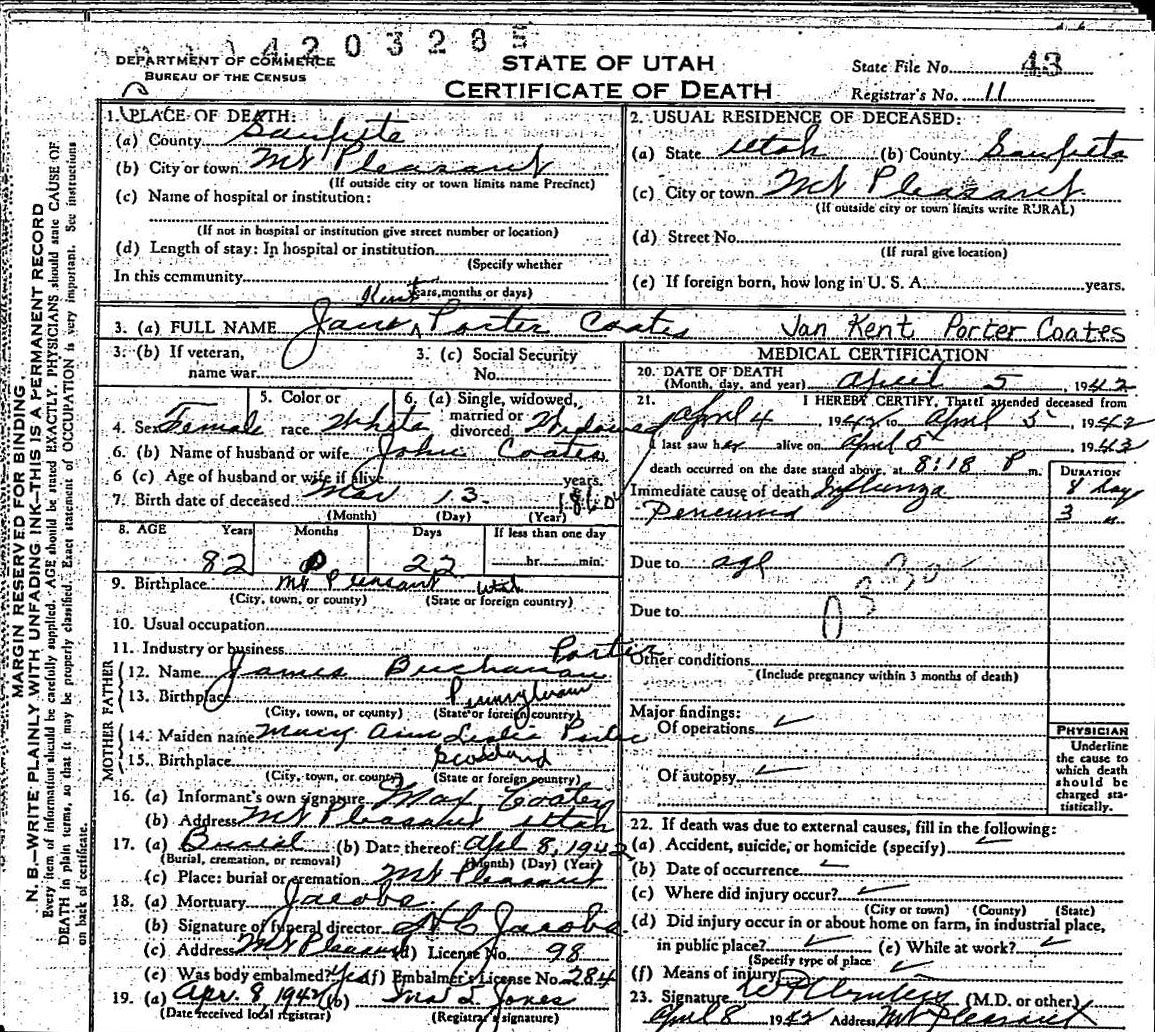 11 4 2 0 3 2 8 5
DEPARTMENT OF COMMERCE
BUREAU OF THE CENSUS
STATE OF UTAH
CERTIFICATE OF DEATH
State File No. 43
Registrar's No. 11
MARGIN RESERVED FOR BINDING
N. B.—WRITE PLAINLY WITH UNFADING INK—THIS IS A PERMANENT RECORD
Every item of information should be carefully supplied. AGE should be stated EXACTLY. PHYSICIANS should state CAUSE OF
DEATH in plain terms, so that it may be properly classified. Exact statement of OCCUPATION is very important. See instructions
on back of certificate.
1. PLACE OF DEATH:
(a) County Sanpete
(b) City or town Mt Pleasant
(If outside city or town limits name Precinct)
(c) Name of hospital or institution:
(If not in hospital or institution give street number or location)
(d) Length of stay: In hospital or institution
(Specify whether
In this community
years, months or days)
2. USUAL RESIDENCE OF DECEASED:
(a) State Utah (b) County Sanpete
(c) City or town Mt Pleasant
(If outside city or town limits write RURAL)
(d) Street No.
(If rural give location)
(e) If foreign born, how long in U. S. A. years.
Kent
3. (a) FULL NAME Jane Porter Coates Jan Kent Porter Coates
3. (b) If veteran,
name war
3. (c) Social Security
No.
4. Sex Female
5. Color or
race White
6. (a) Single, widowed,
married or
divorced Widowed
6. (b) Name of husband or wife John Coates
6 (c) Age of husband or wife if alive years.
7. Birth date of deceased Mar 13 1860
(Month) (Day) (Year)
8. AGE Years Months Days If less than one day
82 0 22 hr. min.
9. Birthplace Mt Pleasant Utah
(City, town, or county) (State or foreign country)
10. Usual occupation
11. Industry or business
FATHER
12. Name James Buchanan Porter
13. Birthplace Pennsylvania
(City, town, or county) (State or foreign country)
MOTHER
14. Maiden name Mary Ann Leslie
15. Birthplace Scotland
(City, town, or county) (State or foreign country)
16. (a) Informant's own signature Max Coates
(b) Address Mt Pleasant Utah
17. (a) Burial (b) Date thereof Apl 8, 1942
(Burial, cremation, or removal) (Month) (Day) (Year)
(c) Place: burial or cremation Mt Pleasant
18. (a) Mortuary Jacobs
(b) Signature of funeral director H C Jacobs
(c) Address Mt Pleasant (d) License No. 98
(e) Was body embalmed? Yes (f) Embalmer's License No. 284
19. (a) Apr. 8 1942 (b) Jones
(Date received local registrar) (Registrar's signature)
MEDICAL CERTIFICATION
20. DATE OF DEATH
(Month, day, and year) April 5, 1942
21. I HEREBY CERTIFY, That I attended deceased from
April 4, 1942 to April 5, 1942
I last saw her alive on April 5 1943
death occurred on the date stated above, at 8:18 P m.
DURATION
Immediate cause of death Influnza 8 day
3 "
Due to age
Due to
Other conditions
(Include pregnancy within 3 months of death)
Major findings:
Of operations ✓
Of autopsy ✓
PHYSICIAN
Underline
the cause to
which death
should be
charged sta-
tistically.
22. If death was due to external causes, fill in the following:
(a) Accident, suicide, or homicide (specify) ✓
(b) Date of occurrence ✓
(c) Where did injury occur? ✓
(City or town) (County) (State)
(d) Did injury occur in or about home on farm, in industrial place,
in public place? ✓ (e) While at work? ✓
(Specify type of place
(f) Means of injury ✓
23. Signature (M.D. or other)
April 8 1942 Address Mt Pleasant